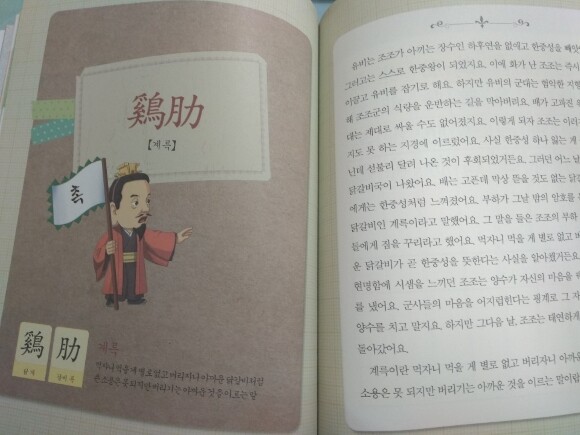 鷄肋
【계륵】
촉
鷄
肋
닭 계
갈비 륵
계륵
먹자니 먹을 게 별로 없고 버리자니 아까운 닭갈비처럼
큰 소용은 못 되지만 버리기는 아까운 것을 이르는 말
유비는 조조가 아끼는 장수인 하후연을 없애고 한중성을 빼앗
그러고는 스스로 한중왕이 되었지요. 이에 화가 난 조조는 즉시
이끌고 유비를 잡기로 해요. 하지만 유비의 군대는 험악한 지형
해 조조군의 식량을 운반하는 길을 막아버려요. 배가 고파진
대는 제대로 싸울 수도 없어졌지요. 이렇게 되자 조조는
지도 못 하는 지경에 이르렀어요. 사실 한중성 하나 잃는 게
닌데 섣불리 달려 나온 것이 후회되었거든요. 그러던 어느 날
닭갈비국이 나왔어요. 배는 고픈데 막상 뜯을 것도 없는 닭갈
에게는 한중성처럼 느껴졌어요. 부하가 그날 밤의 암호를
닭갈비인 계륵이라고 말했어요. 그 말을 들은 조조의 부하
들에게 짐을 꾸리라고 했어요. 먹자니 먹을 게 별로 없고
운 닭갈비가 곧 한중성을 뜻한다는 사실을 알아챘거든요.
현명함에 시샘을 느끼던 조조는 양수가 자신의 마음을
를 냈어요. 군사들의 마음을 어지럽힌다는 핑계로 그 자
양수를 치고 말지요. 하지만 그다음 날, 조조는 태연하게
돌아갔어요.
계륵이란 먹자니 먹을 게 별로 없고 버리자니 아까운
소용은 못 되지만 버리기는 아까운 것을 이르는 말이랍